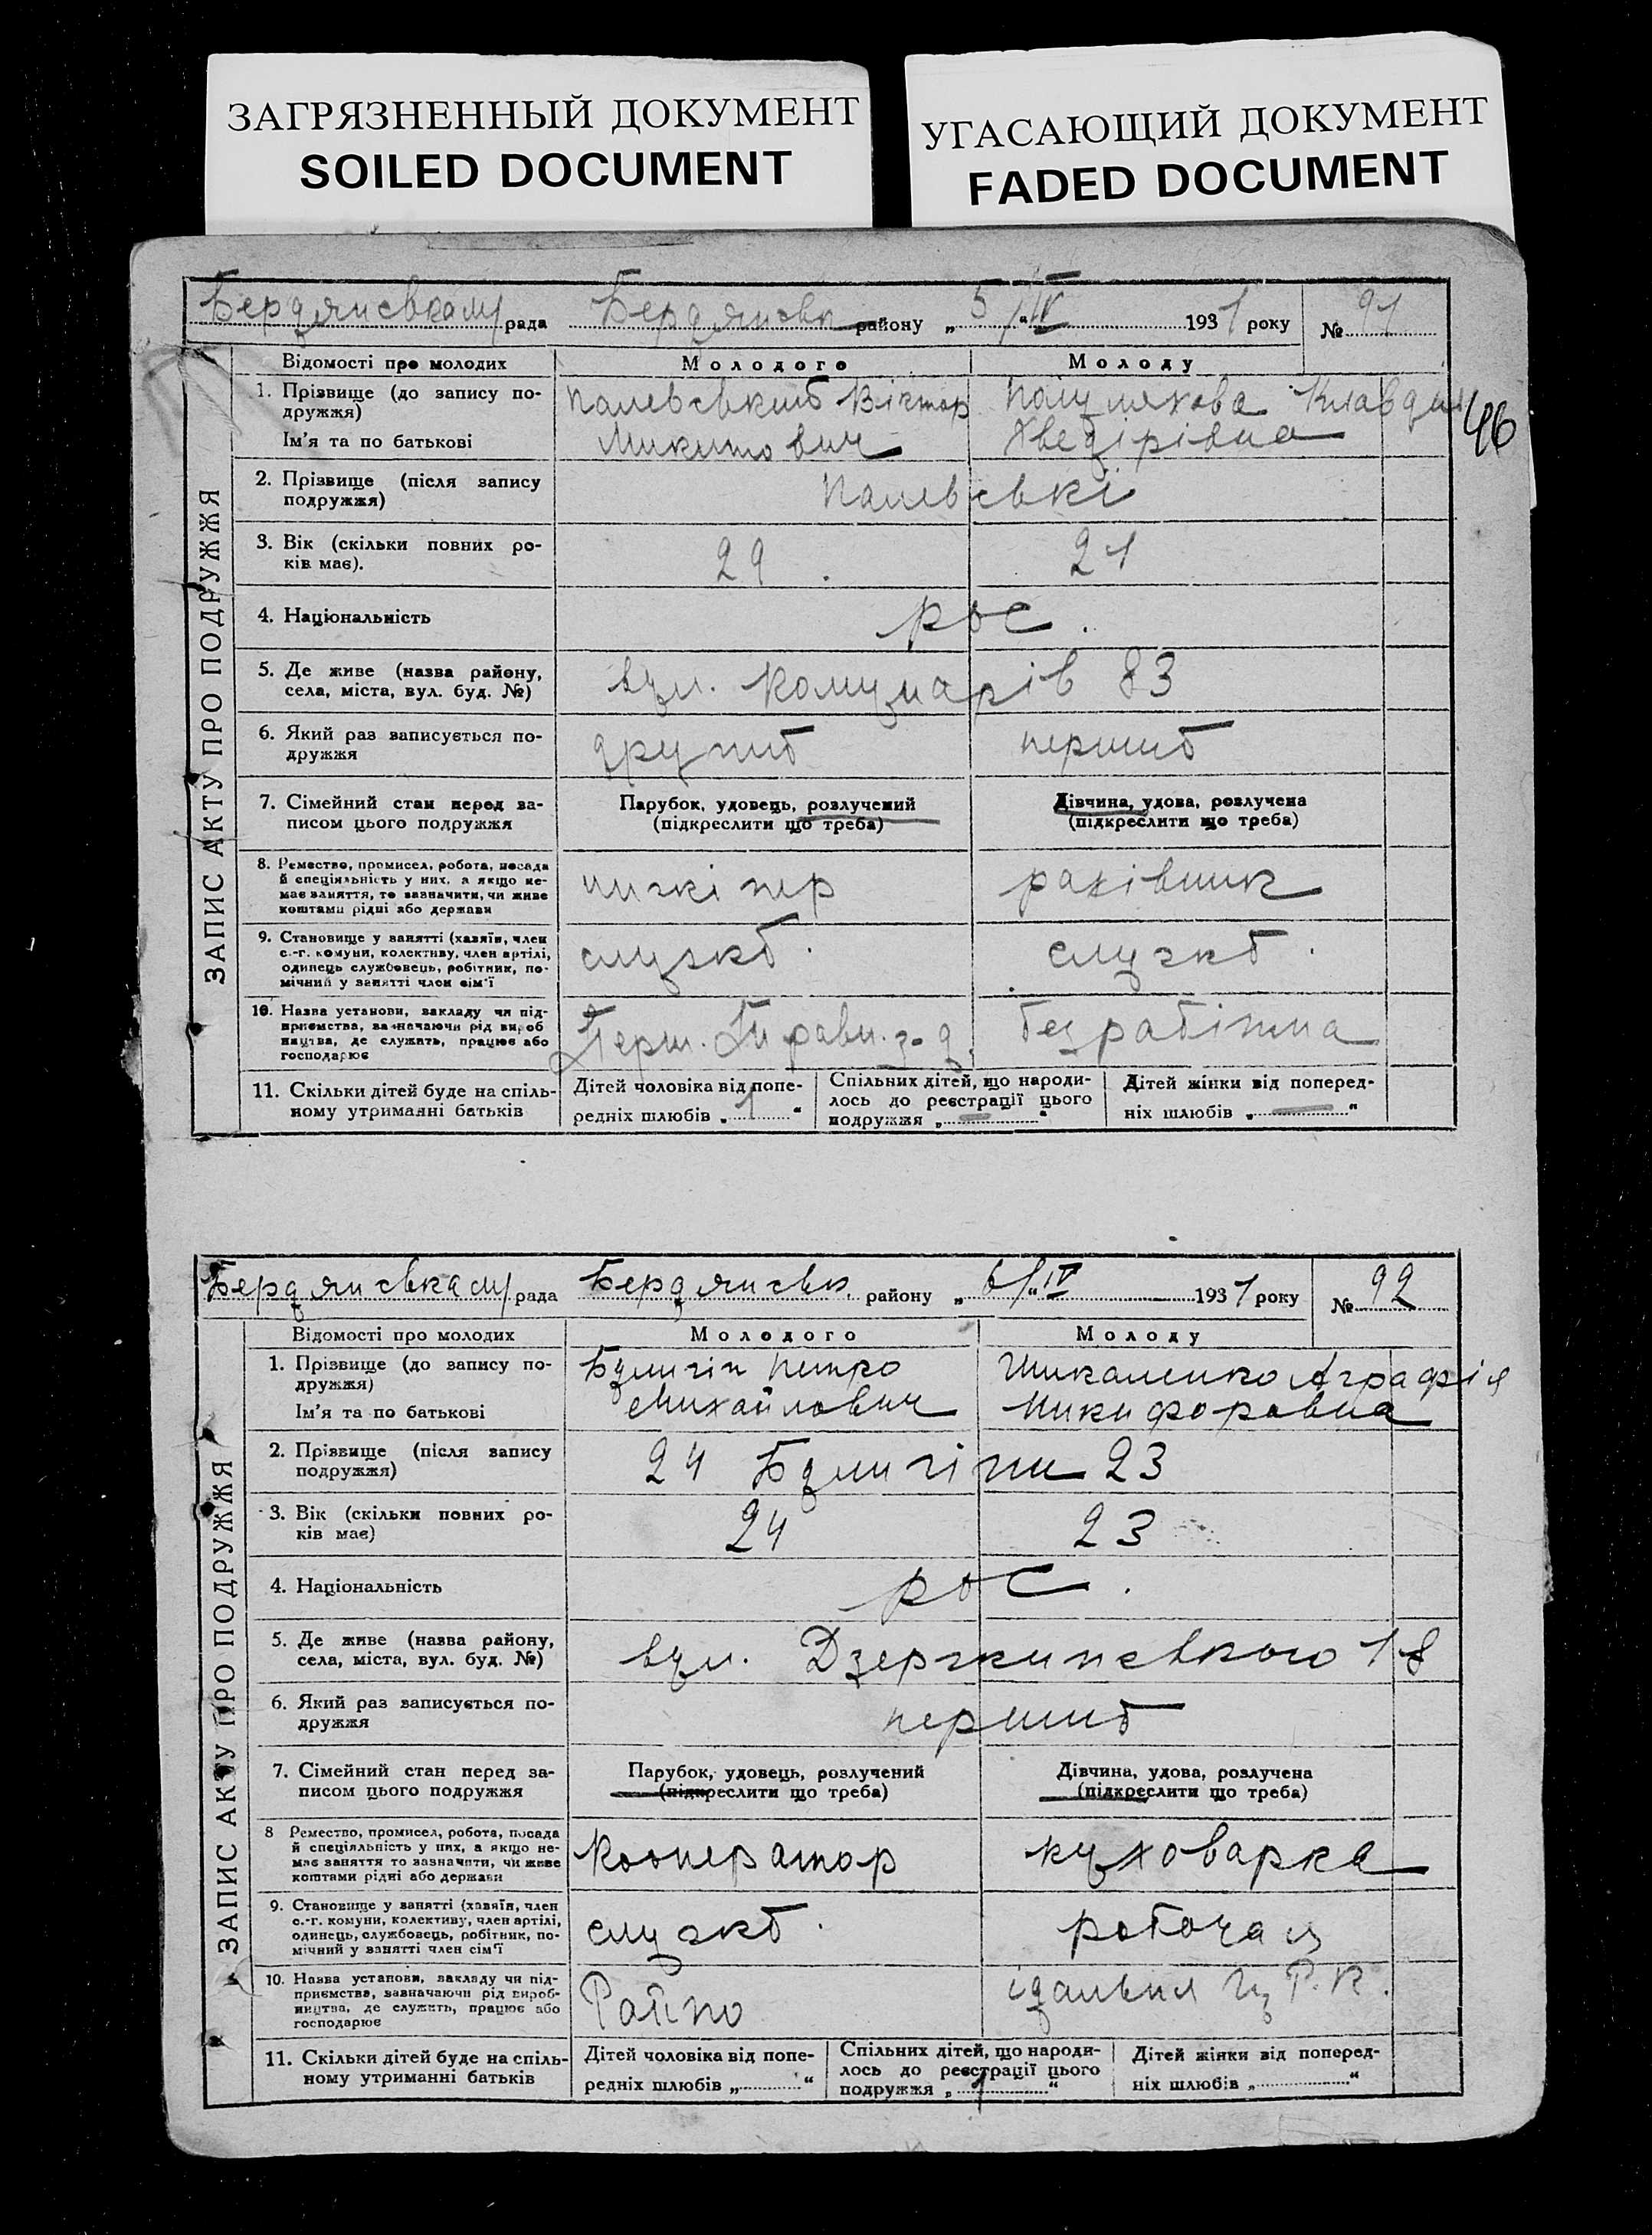 ЗАГРЯЗНЕННЫЙ ДОКУМЕНТ
SOILED DOCUMENT
УГАСАЮЩИЙ ДОКУМЕНТ
FADED DOCUMENT
рада Бердянськ району „5/IV“ 1931 року № 91
ЗАПИС АКТУ ПРО ПОДРУЖЖЯ
Відомості про молодих Молодого Молоду
1. Прізвище (до запису по-
дружжя)
Ім'я та по батькові
Віктор
Микитович
Клавдия
Хведірівна
46
2. Прізвище (після запису
подружжя)
3. Вік (скільки повних ро-
ків має).
29 21
4. Національність
рос.
5. Де живе (назва району,
села, міста, вул. буд. №)
вул. Комунарів 83
6. Який раз записується по-
дружжя
другий перший
7. Сімейний стан перед за-
писом цього подружжя
Парубок, удовець, розлучений
(підкреслити що треба)
Дівчина, удова, розлучена
(підкреслити що треба)
8. Ремество, промисел, робота, посада
й спеціяльність у них, а якщо не-
має заняття, то зазначити, чи живе
коштами рідні або держави
рахівник
9. Становище у занятті (хазяїн, член
с.-г. комуни, колективу, член артілі,
одинець службовець, робітник, по-
мічний у занятті член сім'ї
служб. служб.
10. Назва установи, закладу чи під-
приємства, зазначаючи рід вироб
ництва, де служить, працює або
господарює
Перш. з-д. безрабітна
11. Скільки дітей буде на спіль-
ному утриманні батьків
Дітей чоловіка від попе-
редніх шлюбів „1“
Спільних дітей, що народи-
лось до реєстрації цього
подружжя „—“
Дітей жінки від поперед-
ніх шлюбів „—“
рада Бердянськ. району „6/IV“ 1931 року № 92
ЗАПИС АКТУ ПРО ПОДРУЖЖЯ
Відомості про молодих Молодого Молоду
1. Прізвище (до запису по-
дружжя)
Ім'я та по батькові
Булигін Петро
Михайлович
Шикаленко Аграфія
Никифоровна
2. Прізвище (після запису
подружжя)
24 Булигіни 23
3. Вік (скільки повних ро-
ків має)
24 23
4. Національність
рос.
5. Де живе (назва району,
села, міста, вул. буд. №)
вул. Дзержинського 18
6. Який раз записується по-
дружжя
перший
7. Сімейний стан перед за-
писом цього подружжя
Парубок, удовець, розлучений
(підкреслити що треба)
Дівчина, удова, розлучена
(підкреслити що треба)
8 Ремество, промисел, робота, посада
й спеціяльність у них, а якщо не-
має заняття то зазначити, чи живе
коштами рідні або держави
Кооператор куховарка
9. Становище у занятті (хазяїн, член
с.-г. комуни, колективу, член артілі,
одинець, службовець, робітник, по-
мічний у занятті член сім'ї
служб. робочая
10. Назва установи, закладу чи під-
приємства, зазначаючи рід вироб-
ництва, де служить, працює або
господарює
Райпо їдальня Ц.Р.К.
11. Скільки дітей буде на спіль-
ному утриманні батьків
Дітей чоловіка від попе-
редніх шлюбів „“
Спільних дітей, що народи-
лось до реєстрації цього
подружжя „1“
Дітей жінки від поперед-
ніх шлюбів „“